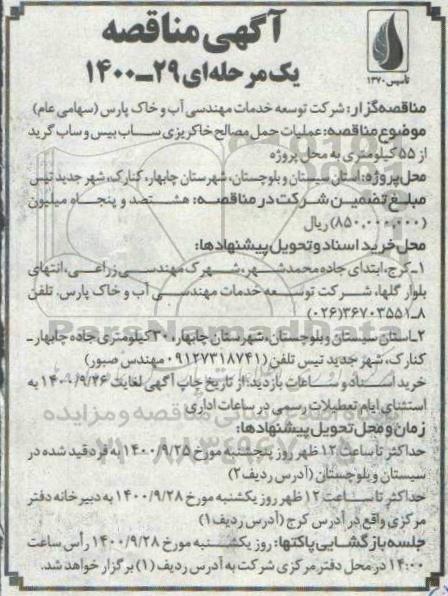 آگهی مناقصه
یک مرحله‌ای ۲۹-۱۴۰۰
تأسیس ۱۳۷۰
مناقصه‌گزار: شرکت توسعه خدمات مهندسی آب و خاک پارس (سهامی عام)
موضوع مناقصه: عملیات حمل مصالح خاکریزی ساب بیس و ساب گرید
از ۵۵ کیلومتری به محل پروژه
محل پروژه: استان سیستان و بلوچستان، شهرستان چابهار، کنارک، شهر جدید تیس
مبلغ تضمین شرکت در مناقصه: هشتصد و پنجاه میلیون
(۸۵۰,۰۰۰,۰۰۰) ریال
محل خرید اسناد و تحویل پیشنهادها:
۱ـ کرج، ابتدای جاده محمدشهر، شهرک مهندسی زراعی، انتهای
بلوار گلها، شرکت توسعه خدمات مهندسی آب و خاک پارس. تلفن
۸ـ۳۶۷۰۳۵۵۱(۰۲۶)
۲ـ استان سیستان و بلوچستان، شهرستان چابهار، ۳۰ کیلومتری جاده چابهار ـ
کنارک، شهر جدید تیس تلفن (۰۹۱۲۷۳۱۸۷۴۱ مهندس صبور)
خرید اسناد و ساعات بازدید: از تاریخ چاپ آگهی لغایت ۱۴۰۰/۹/۲۶ به
استثنای ایام تعطیلات رسمی در ساعات اداری
زمان و محل تحویل پیشنهادها:
حداکثر تا ساعت ۱۲ ظهر روز پنجشنبه مورخ ۱۴۰۰/۹/۲۵ به فرد قید شده در
سیستان و بلوچستان (آدرس ردیف ۲)
حداکثر تا ساعت ۱۲ ظهر روز یکشنبه مورخ ۱۴۰۰/۹/۲۸ به دبیرخانه دفتر
مرکزی واقع در آدرس کرج (آدرس ردیف ۱)
جلسه بازگشایی پاکتها: روز یکشنبه مورخ ۱۴۰۰/۹/۲۸ رأس ساعت
۱۴:۰۰ در محل دفتر مرکزی شرکت به آدرس ردیف (۱) برگزار خواهد شد.